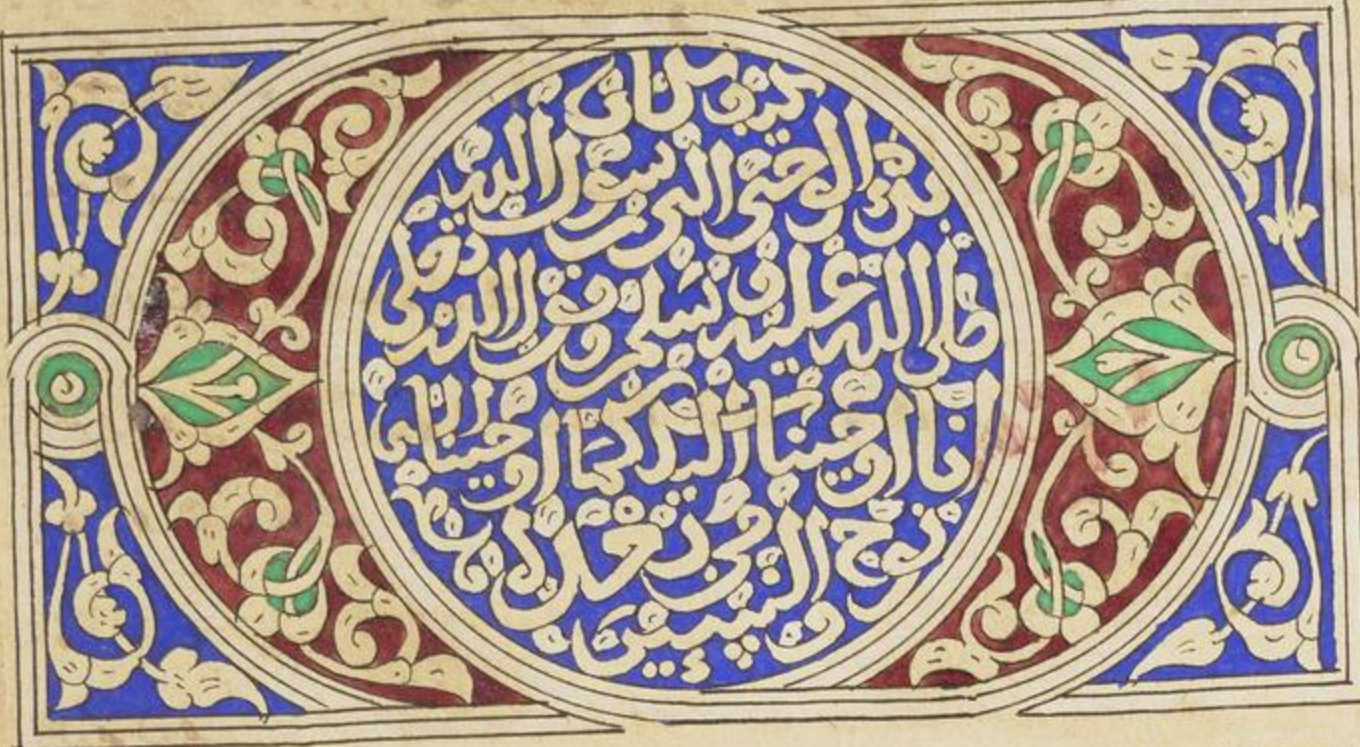 كيف كان
بدء الوحي الى رسول الله
صلى الله عليه وسلم وقول الله
انا اوحينا اليك كما اوحينا الى
نوح
والنبيين من بعده